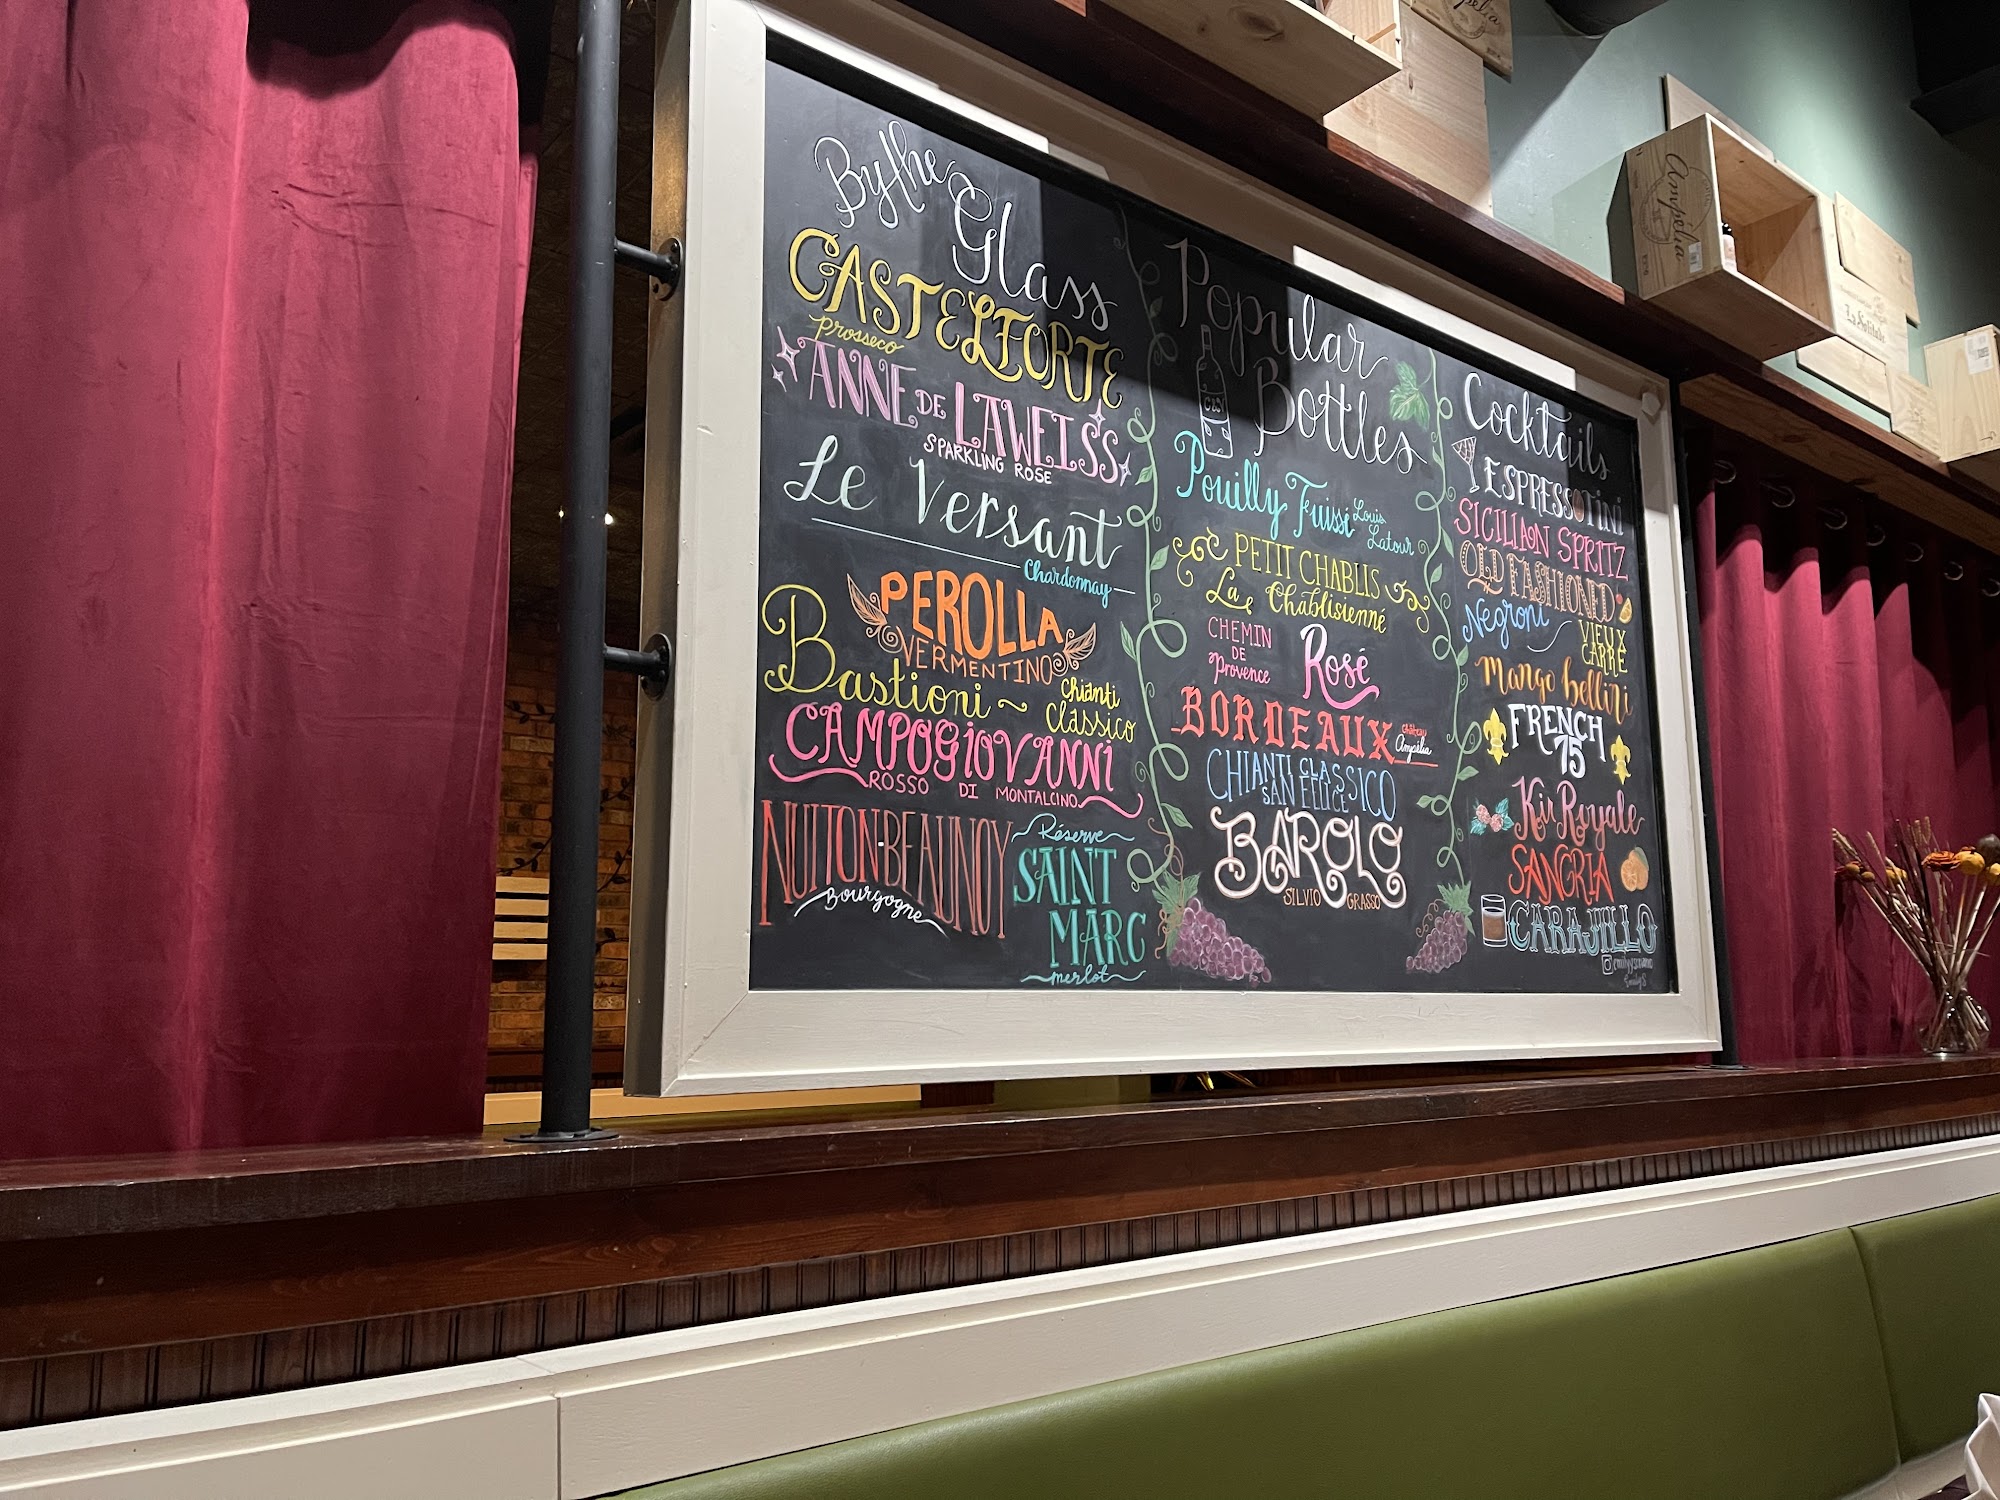 By the
Glass
CASTELFORTE
Prosseco
ANNE DE LAWEISS
SPARKLING ROSE
Le Versant
Chardonnay
PEROLLA
VERMENTINO
Bastioni ~ Chianti
Classico
CAMPOGIOVANNI
ROSSO DI MONTALCINO
NUITON-BEAUNOY
Bourgogne
Réserve
SAINT
MARC
merlot
Popular
Bottles
Pouilly Fuissi Louis
Latour
PETIT CHABLIS
La Chablisienné
CHEMIN
DE
Provence
Rosé
BORDEAUX
Château
Ampélia
CHIANTI CLASSICO
SAN FELICE
BAROLO
SILVIO GRASSO
Cocktails
ESPRESSOTINI
SICILIAN SPRITZ
OLD FASHIONED
Negroni
VIEUX
CARRE
Mango bellini
FRENCH
75
Kir Royale
SANGRIA
CARAJILLO
Ampélia
La Solitude